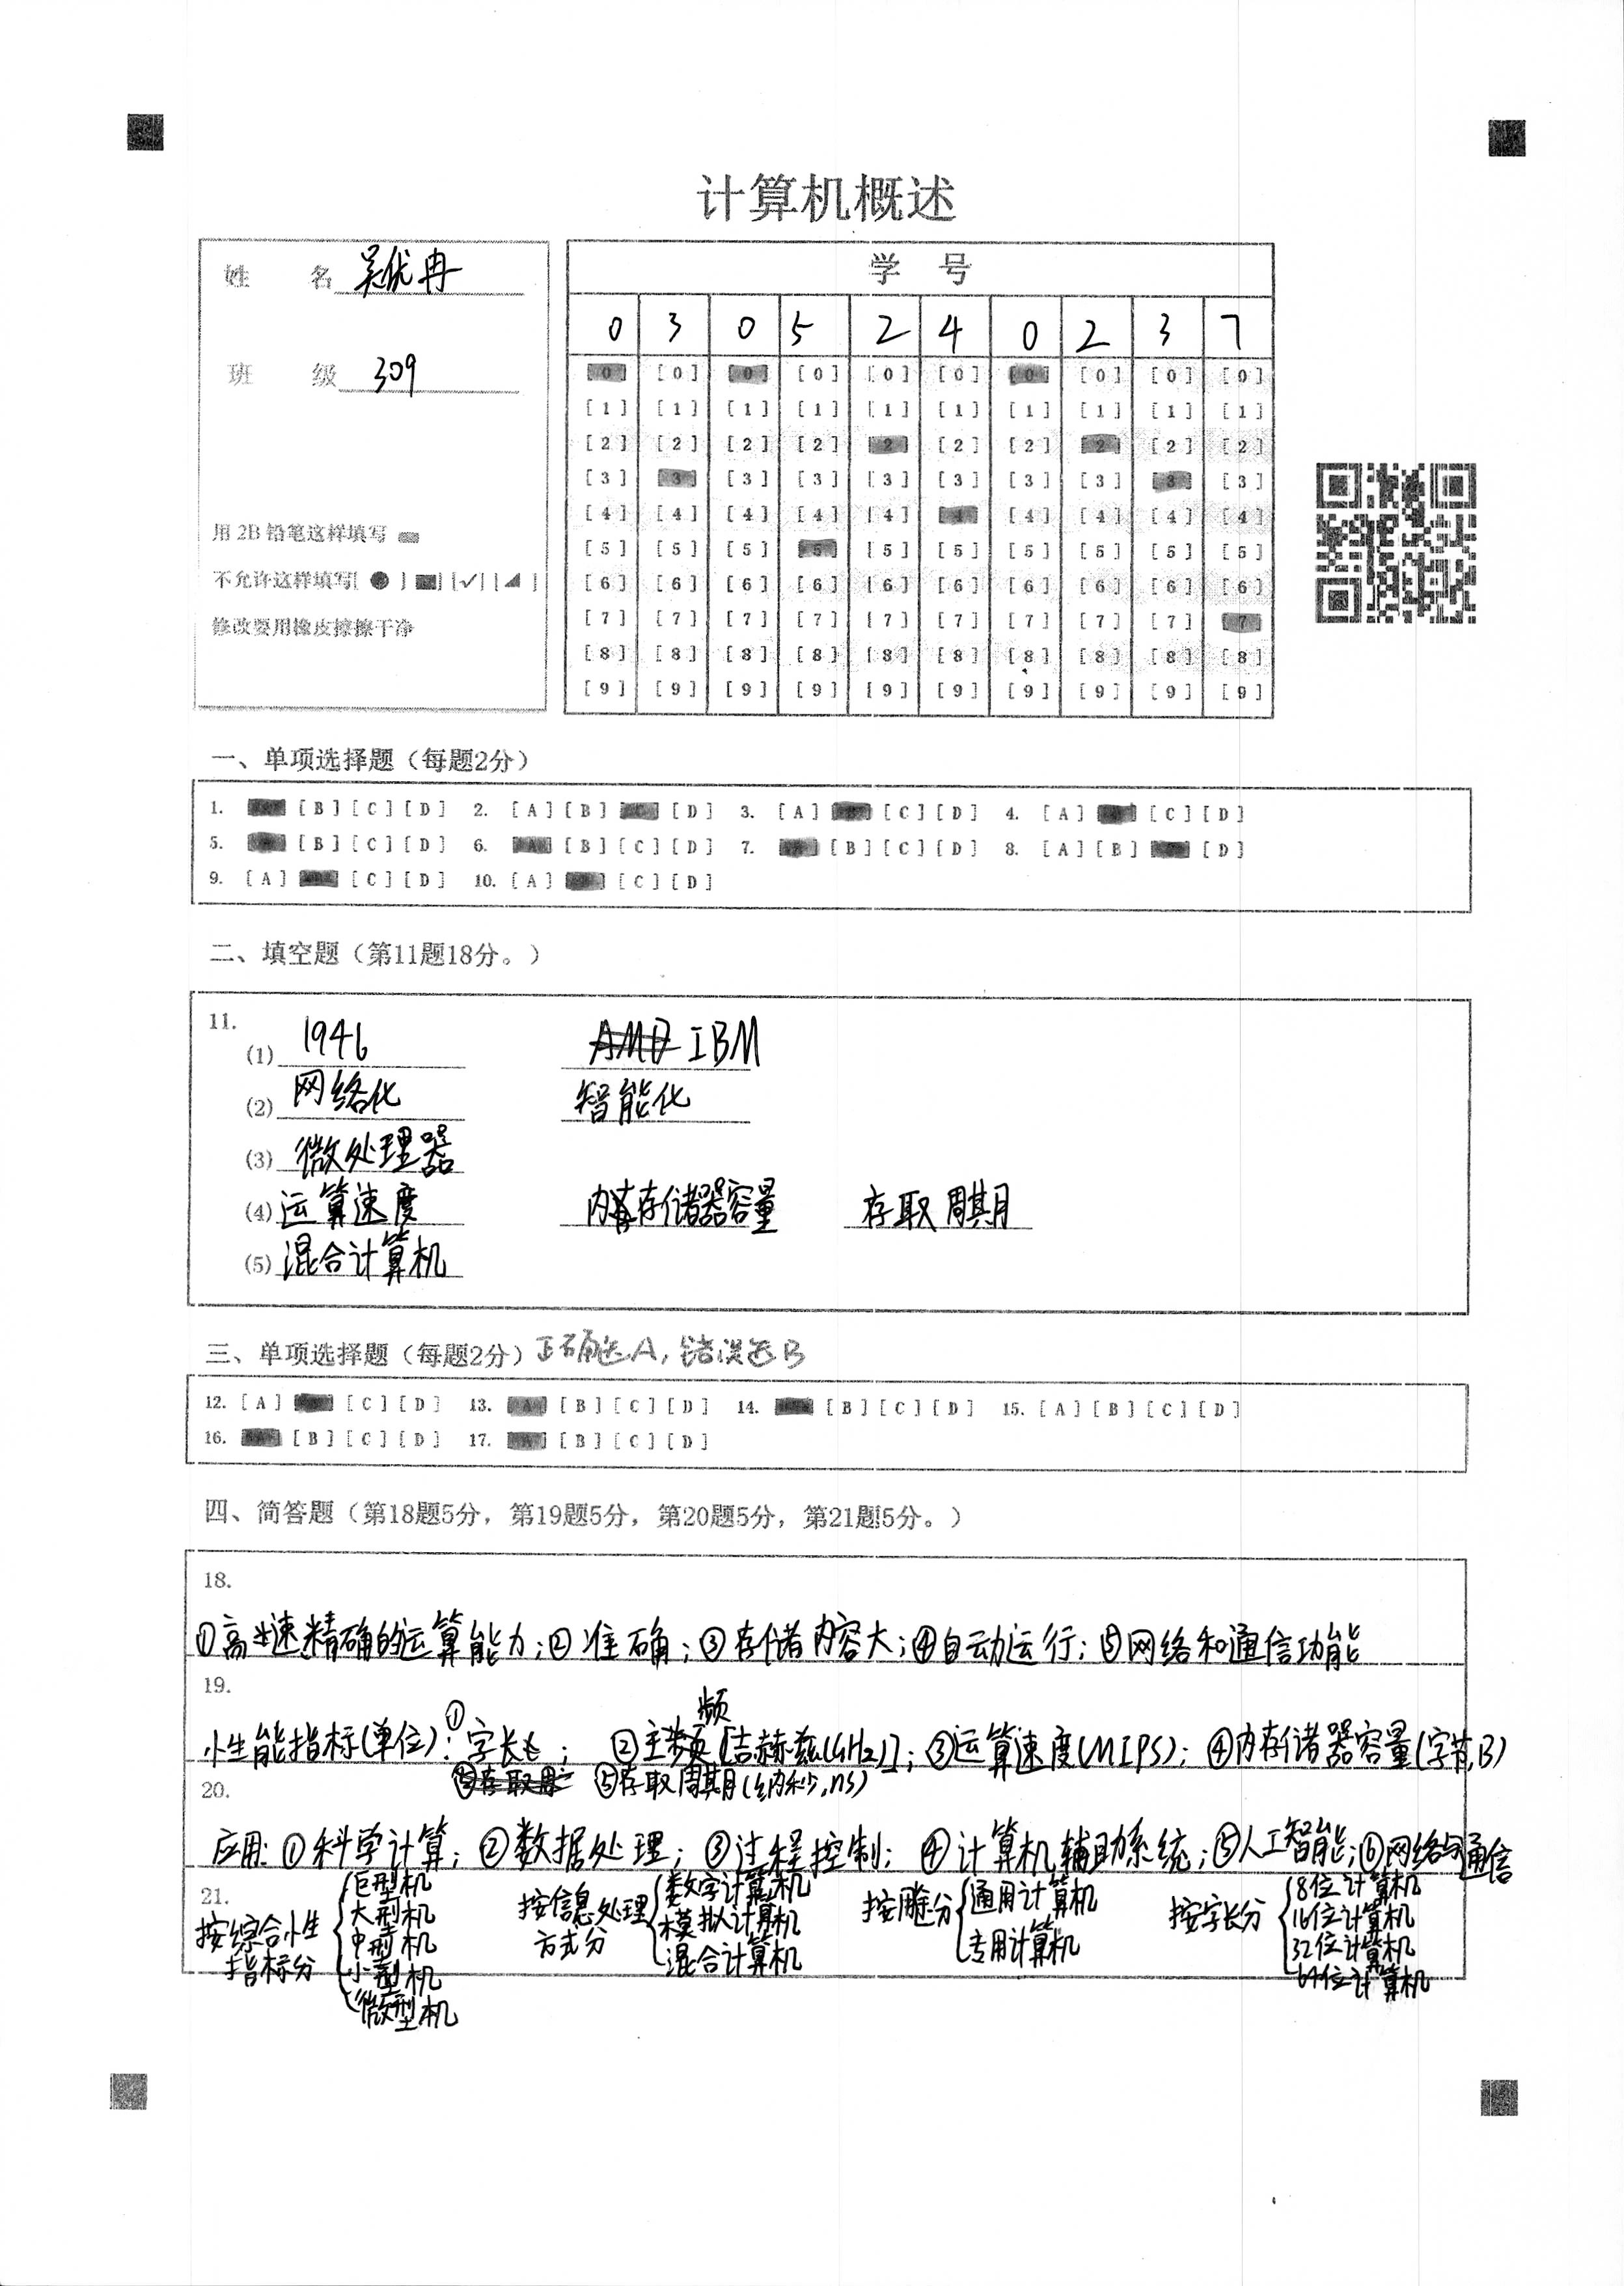 计算机概述
姓 名 吴优冉
班 级 309
用 2B 铅笔这样填写
不允许这样填写[ ● ] [■] [✓] [◢ ]
修改要用橡皮擦擦干净
学 号
0 3 0 5 2 4 0 2 3 7
[0] [0] [0] [0] [0] [0] [0] [0] [0] [0]
[1] [1] [1] [1] [1] [1] [1] [1] [1] [1]
[2] [2] [2] [2] [2] [2] [2] [2] [2] [2]
[3] [3] [3] [3] [3] [3] [3] [3] [3] [3]
[4] [4] [4] [4] [4] [4] [4] [4] [4] [4]
[5] [5] [5] [5] [5] [5] [5] [5] [5] [5]
[6] [6] [6] [6] [6] [6] [6] [6] [6] [6]
[7] [7] [7] [7] [7] [7] [7] [7] [7] [7]
[8] [8] [8] [8] [8] [8] [8] [8] [8] [8]
[9] [9] [9] [9] [9] [9] [9] [9] [9] [9]
一、单项选择题（每题2分）
1. [A] [B] [C] [D] 2. [A] [B] [C] [D] 3. [A] [B] [C] [D] 4. [A] [B] [C] [D]
5. [A] [B] [C] [D] 6. [A] [B] [C] [D] 7. [A] [B] [C] [D] 8. [A] [B] [C] [D]
9. [A] [B] [C] [D] 10. [A] [B] [C] [D]
二、填空题（第11题18分。）
11.
(1) 1946 AMD IBM
(2) 网络化 智能化
(3) 微处理器
(4) 运算速度 内存储器容量 存取周期
(5) 混合计算机
三、单项选择题（每题2分）正确选A，错误选B
12. [A] [B] [C] [D] 13. [A] [B] [C] [D] 14. [A] [B] [C] [D] 15. [A] [B] [C] [D]
16. [A] [B] [C] [D] 17. [A] [B] [C] [D]
四、简答题（第18题5分，第19题5分，第20题5分，第21题5分。）
18.
①高速精确的运算能力；②准确；③存储内容大；④自动运行；⑤网络和通信功能
19.
性能指标(单位)：①字长；②主频[吉赫兹(GHz)]；③运算速度(MIPS)；④内存储器容量(字节,B)
⑤存取周期(纳秒,ns)
20.
应用：①科学计算；②数据处理；③过程控制；④计算机辅助系统；⑤人工智能；⑥网络与通信
21.
按综合性指标分 巨型机 大型机 中型机 小型机 微型机
按信息处理方式分 数字计算机 模拟计算机 混合计算机
按用途分 通用计算机 专用计算机
按字长分 8位计算机 16位计算机 32位计算机 64位计算机